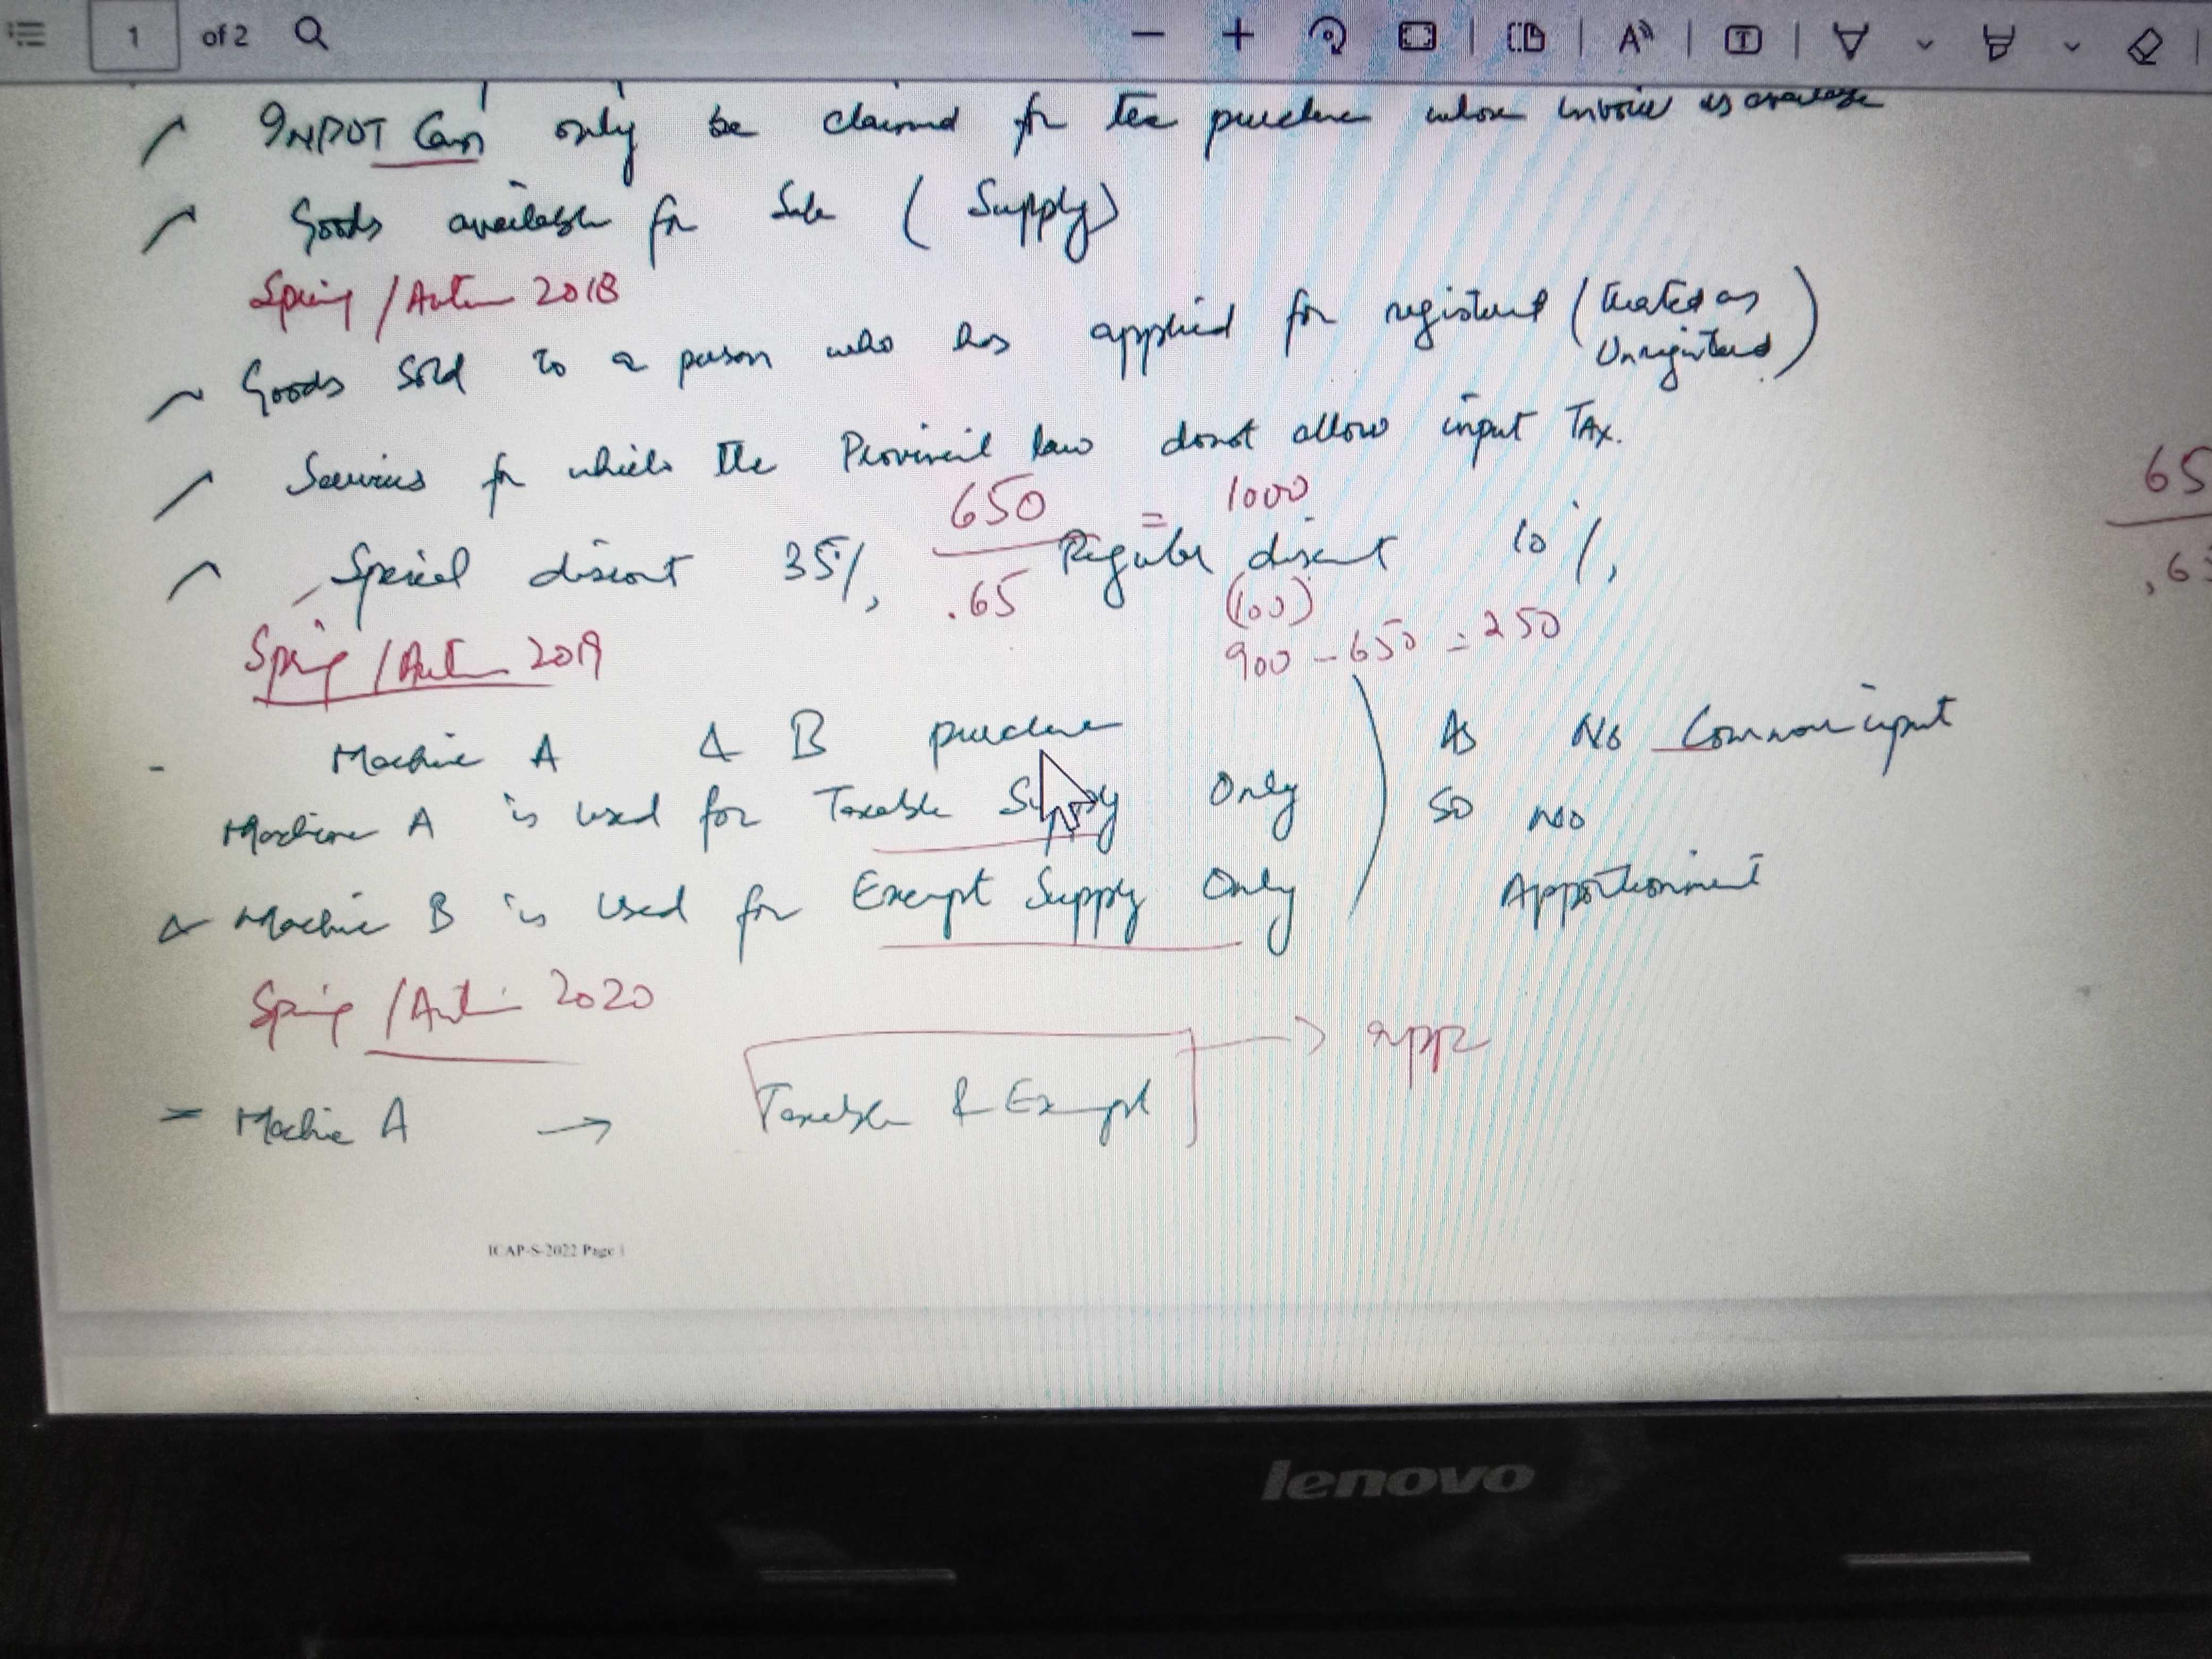 1 of 2
INPUT Can only be claimed for the purchase whose invoice is available
Goods available for Sale (Supply)
Spring / Autumn 2018
Goods sold to a person who has applied for registered (treated as
Unregistered)
Services for which the Provincial law donot allow input TAX.
650 = 1000
Special discount 35%, Regular discount 10%,
.65 (100)
900 - 650 = 250
65
Spring / Autumn 2019
- Machine A & B purchase
Machine A is used for Taxable Supply Only
& Machine B is used for Exempt Supply Only
As No Common input
SO NO
Apportionment
Spring / Autumn 2020
app
- Machine A → Taxable & Exempt
ICAP-S-2022 Page 1
lenovo